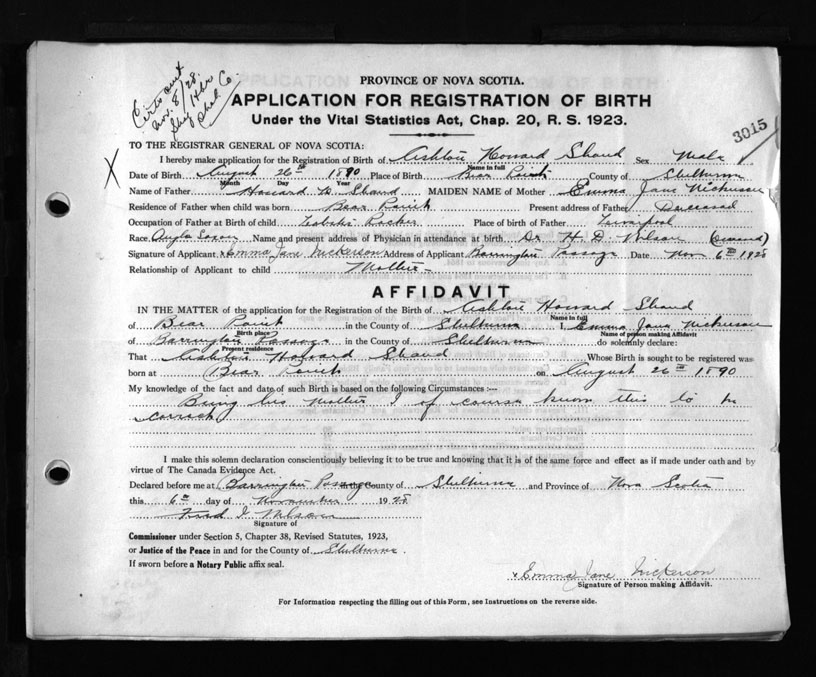 Nov. 8/28.
PROVINCE OF NOVA SCOTIA.
APPLICATION FOR REGISTRATION OF BIRTH
Under the Vital Statistics Act, Chap. 20, R. S. 1923.
3015
TO THE REGISTRAR GENERAL OF NOVA SCOTIA:
X I hereby make application for the Registration of Birth of Ashton Howard Shand Sex Male
Name in full
Date of Birth August 26th 1890 Place of Birth Bear Point County of Shelburne
Month Day Year
Name of Father Howard Shand MAIDEN NAME of Mother Emma Jane Nickerson
Residence of Father when child was born Bear Point Present address of Father Deceased
Occupation of Father at Birth of child Lobster Packer Place of birth of Father Liverpool
Race Anglo Saxon Name and present address of Physician in attendance at birth Dr H. D. Wilson (Deceased)
Signature of Applicant x Emma Jane Nickerson Address of Applicant Barrington Passage Date Nov 6th 1928
Relationship of Applicant to child Mother
AFFIDAVIT
IN THE MATTER of the application for the Registration of the Birth of Ashton Howard Shand
Name in full
of Bear Point in the County of Shelburne I Emma Jane Nickerson
Birth place Name of person making Affidavit
of Barrington Passage in the County of Shelburne do solemnly declare:
Present residence
That Ashton Howard Shand Whose Birth is sought to be registered was
born at Bear Point on August 26th 1890
My knowledge of the fact and date of such Birth is based on the following Circumstances :—
Being his Mother I of course know this to be
correct
I make this solemn declaration conscientiously believing it to be true and knowing that it is of the same force and effect as if made under oath and by
virtue of The Canada Evidence Act.
Declared before me at Barrington Passage in the County of Shelburne and Province of Nova Scotia
this 6th day of November 1928
Fred
Signature of
Commissioner under Section 5, Chapter 38, Revised Statutes, 1923,
or Justice of the Peace in and for the County of Shelburne.
If sworn before a Notary Public affix seal.
x Emma Jane Nickerson
Signature of Person making Affidavit.
For Information respecting the filling out of this Form, see Instructions on the reverse side.